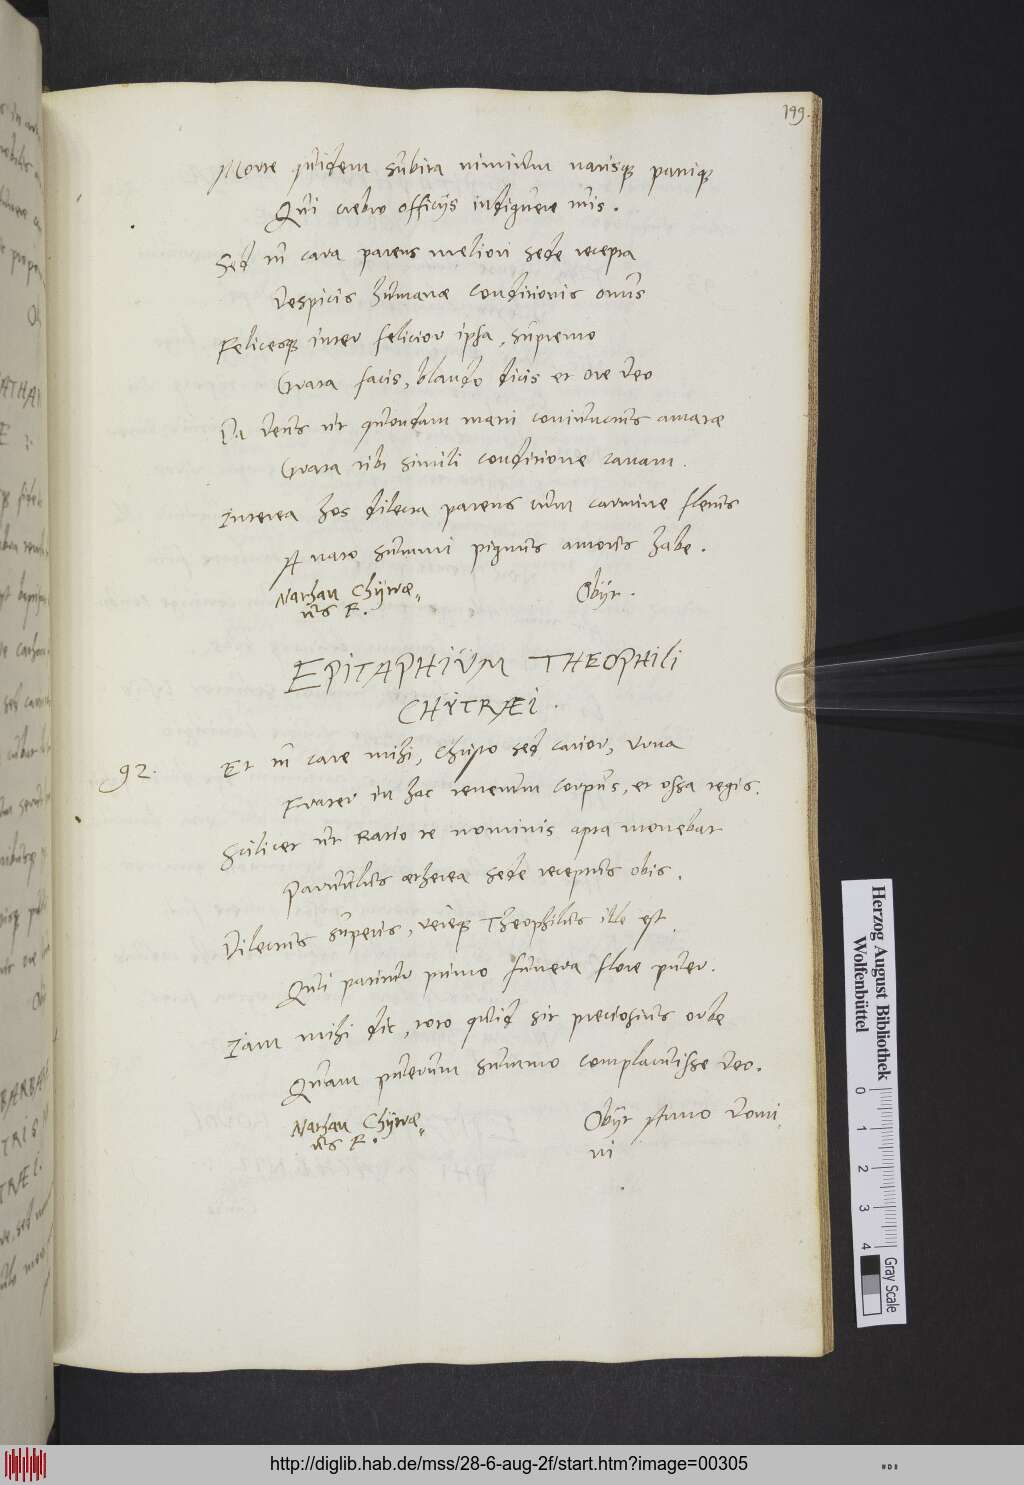 199.
Morte quidem subita nimium natisq patriq
Qui crebro officijs indiguere tuis.
Sed tu cara parens meliori sede recepta
Despicis humanae conditionis onus
Felicesq inter felicior ipsa, supremo
Grata facis, blando dicis et ore Deo
Da Deus ut quondam matri coniunctus amatae
Grata tibi simili conditione canam.
Interea hos dilecta parens cum carmine fletus
A nato summi pignus amoris habe.
Nathan Chytrae
us F.
Obijt.
EPITAPHIUM THEOPHILI
CHYTRAEI.
92.
Et tu care mihi, Christo sed carior, urna
Frater in hac tenerum corpus, et ossa tegis.
Scilicet ut Ratio te nominis apta monebat
Parvulus aetherea sede receptus obis.
Dilectus superis, vereq Theophilus ille est
Qui patitur primo funera flore puer.
Iam mihi dic, toto quid sit preciosius orbe
Quam puerum summo complacuisse Deo.
Nathan Chytrae
us F.
Obijt Anno Domi
ni
Herzog August Bibliothek
Wolfenbüttel
0 1 2 3 4
Gray Scale
http://diglib.hab.de/mss/28-6-aug-2f/start.htm?image=00305